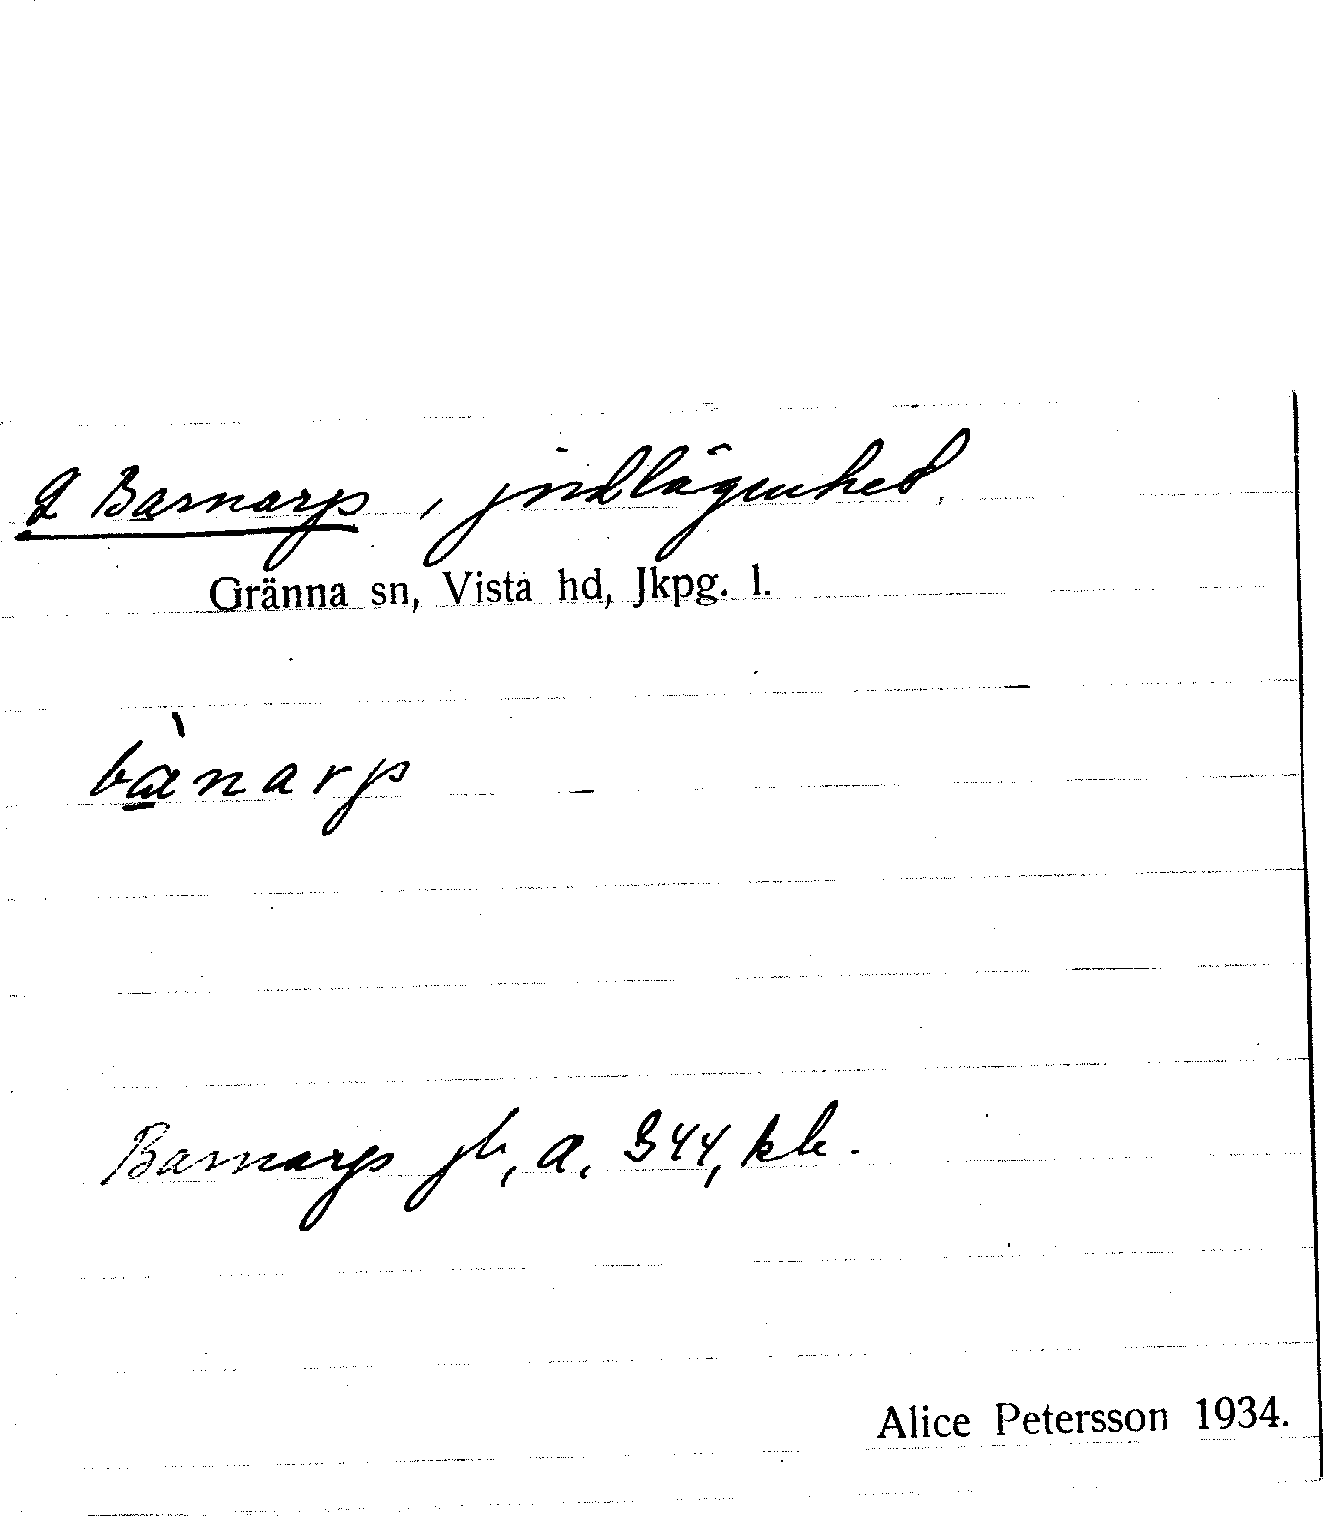 Barnarp, jordlägenhet.
Gränna sn, Vista hd, Jkpg. l.
bànarp
Barnarp jb, a. 344, kb.
Alice Petersson 1934.